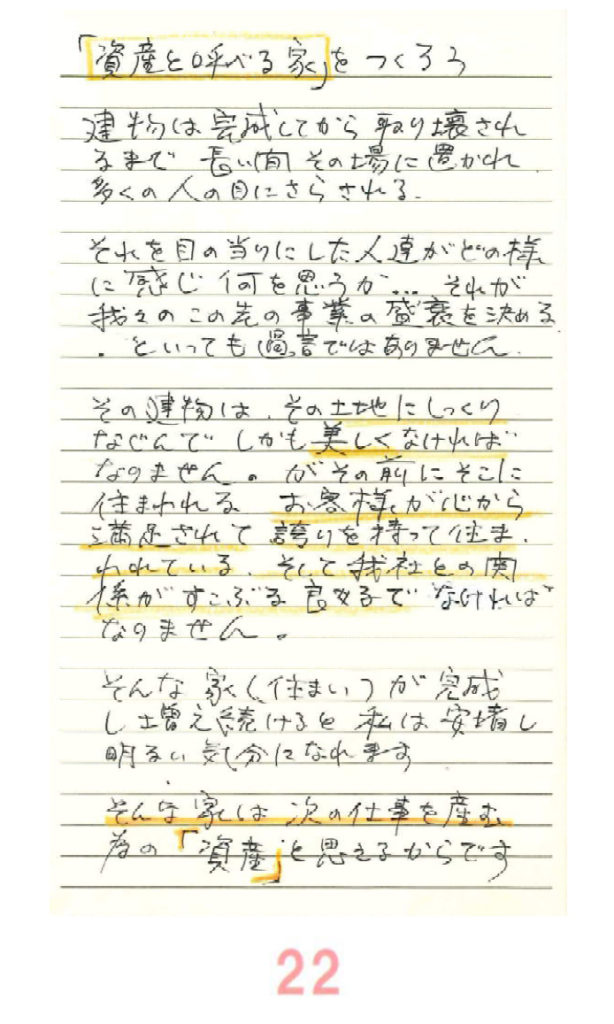 「資産と呼べる家」をつくろう
建物は完成してから取り壊され
るまで 長い間 その場に置かれ
多くの人の目にさらされる.
それを目の当りにした人達がどの様
に感じ 何を思うか… それが
我々のこの先の事業の盛衰を決める
. といっても過言ではありません.
その建物は、その土地にしっくり
なじんで しかも美しくなければ
なりません。がその前にそこに
住まわれる お客様が心から
満足されて 誇りを持って住ま.
われている、そして我社との関
係がすこぶる良好で なければ
なりません。
そんな家(住まい)が完成
し増え続けると 私は安堵し
明るい気分になれます
そんな家は 次の仕事を産む
為の「資産」と思えるからです
22